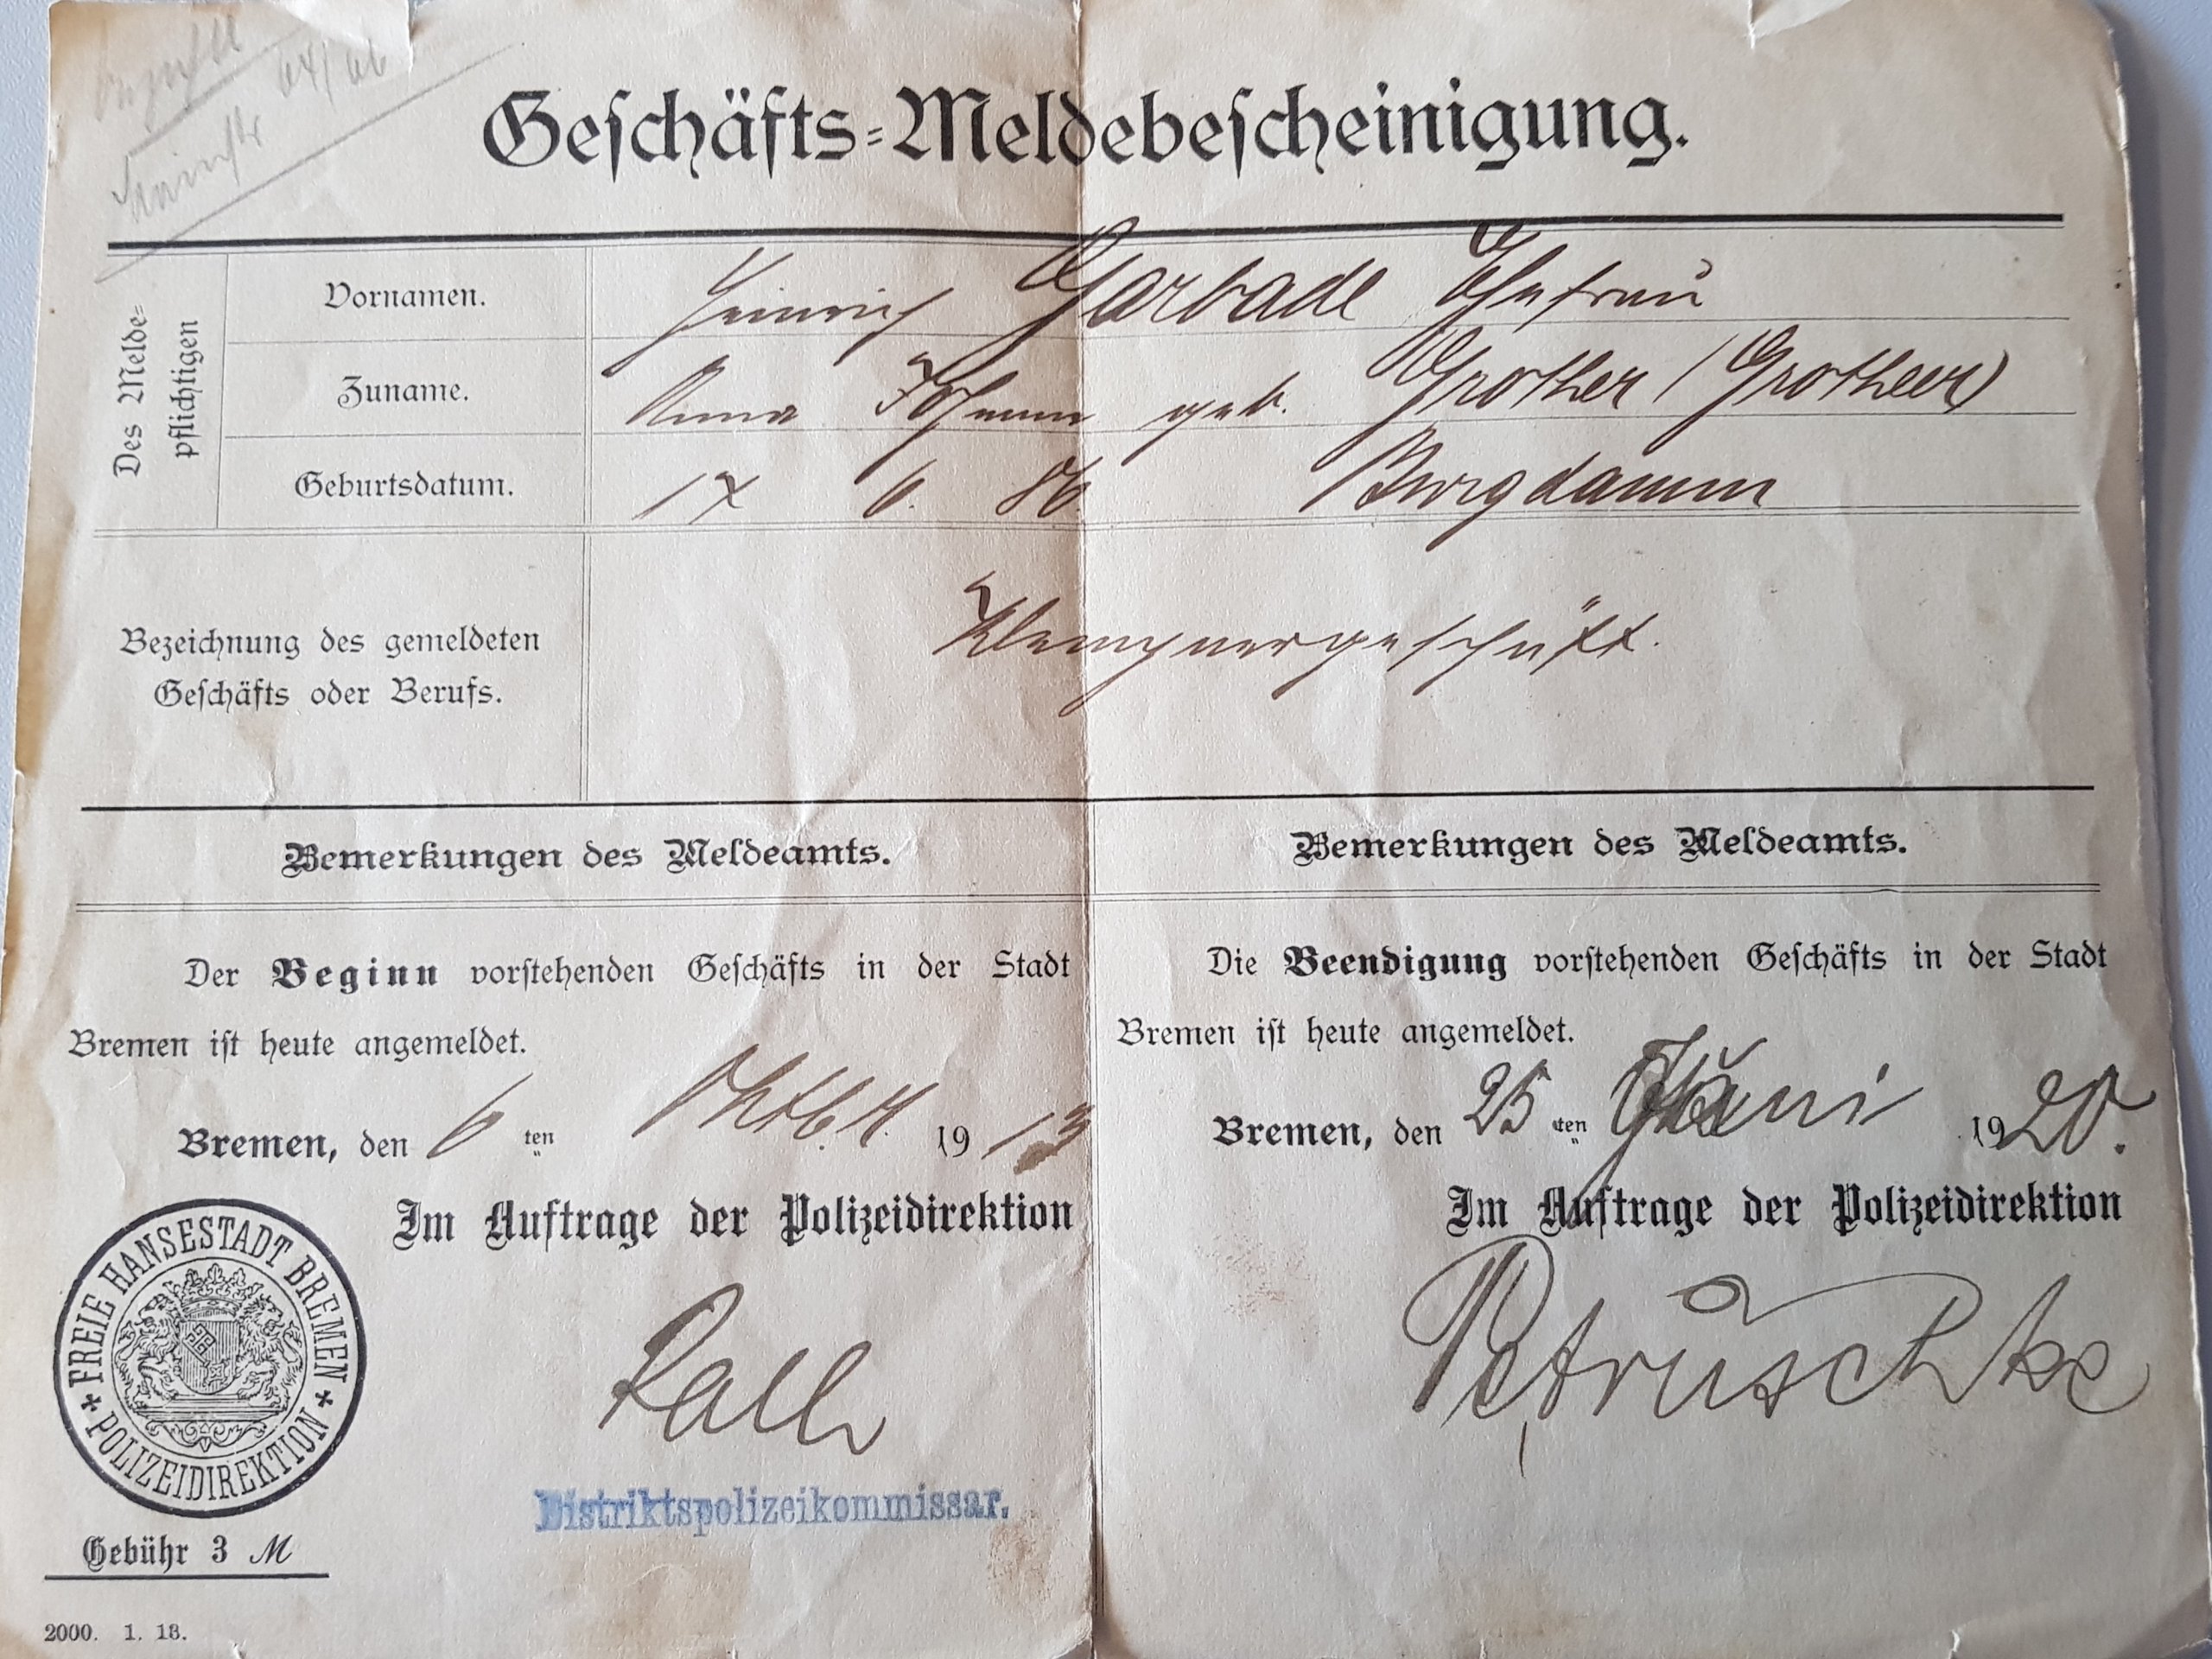 64/66
Geschäfts-Meldebescheinigung.
Des Melde-
pflichtigen
Vornamen.
Heinrich Garbade Ehefrau
Zuname.
Anna Johanne geb. Grother (Grotheer)
Geburtsdatum.
17 6. 86. Burgdamm
Bezeichnung des gemeldeten
Geschäfts oder Berufs.
Klempnergeschäft.
Bemerkungen des Meldeamts.
Der Beginn vorstehenden Geschäfts in der Stadt
Bremen ist heute angemeldet.
Bremen, den 6 ten Oktbr. 1913
Im Auftrage der Polizeidirektion
FREIE HANSESTADT BREMEN
POLIZEIDIREKTION
Distriktspolizeikommissar.
Gebühr 3 M
2000. 1. 13.
Bemerkungen des Meldeamts.
Die Beendigung vorstehenden Geschäfts in der Stadt
Bremen ist heute angemeldet.
Bremen, den 25 ten Juni 1920.
Im Auftrage der Polizeidirektion
Petruschke